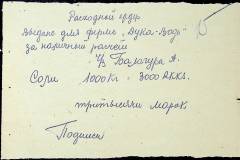 Расходной ордер
Выдано для фирмы „Дука-Водэ"
за наличный расчет
ч/з Балагура А.
Соли 1000 кг - 3000 д.кх.
три тысячи марок
Подписи